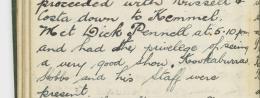 proceeded with Russell &
Costa down to Kemmel.
Met Dick Pennell at 5.10 pm
and had the privilege of seeing
a very good show, Kookaburras.
Hobbs and his Staff were
present.